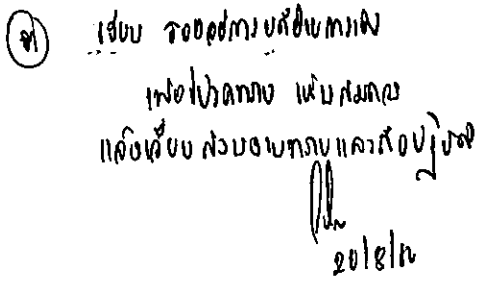 เรียน รองอธิการบดีฝ่ายการเงิน
เพื่อโปรดทราบ เห็นสมควร
แจ้งเวียน ส่วนงานทราบและถือปฏิบัติ
20/8/